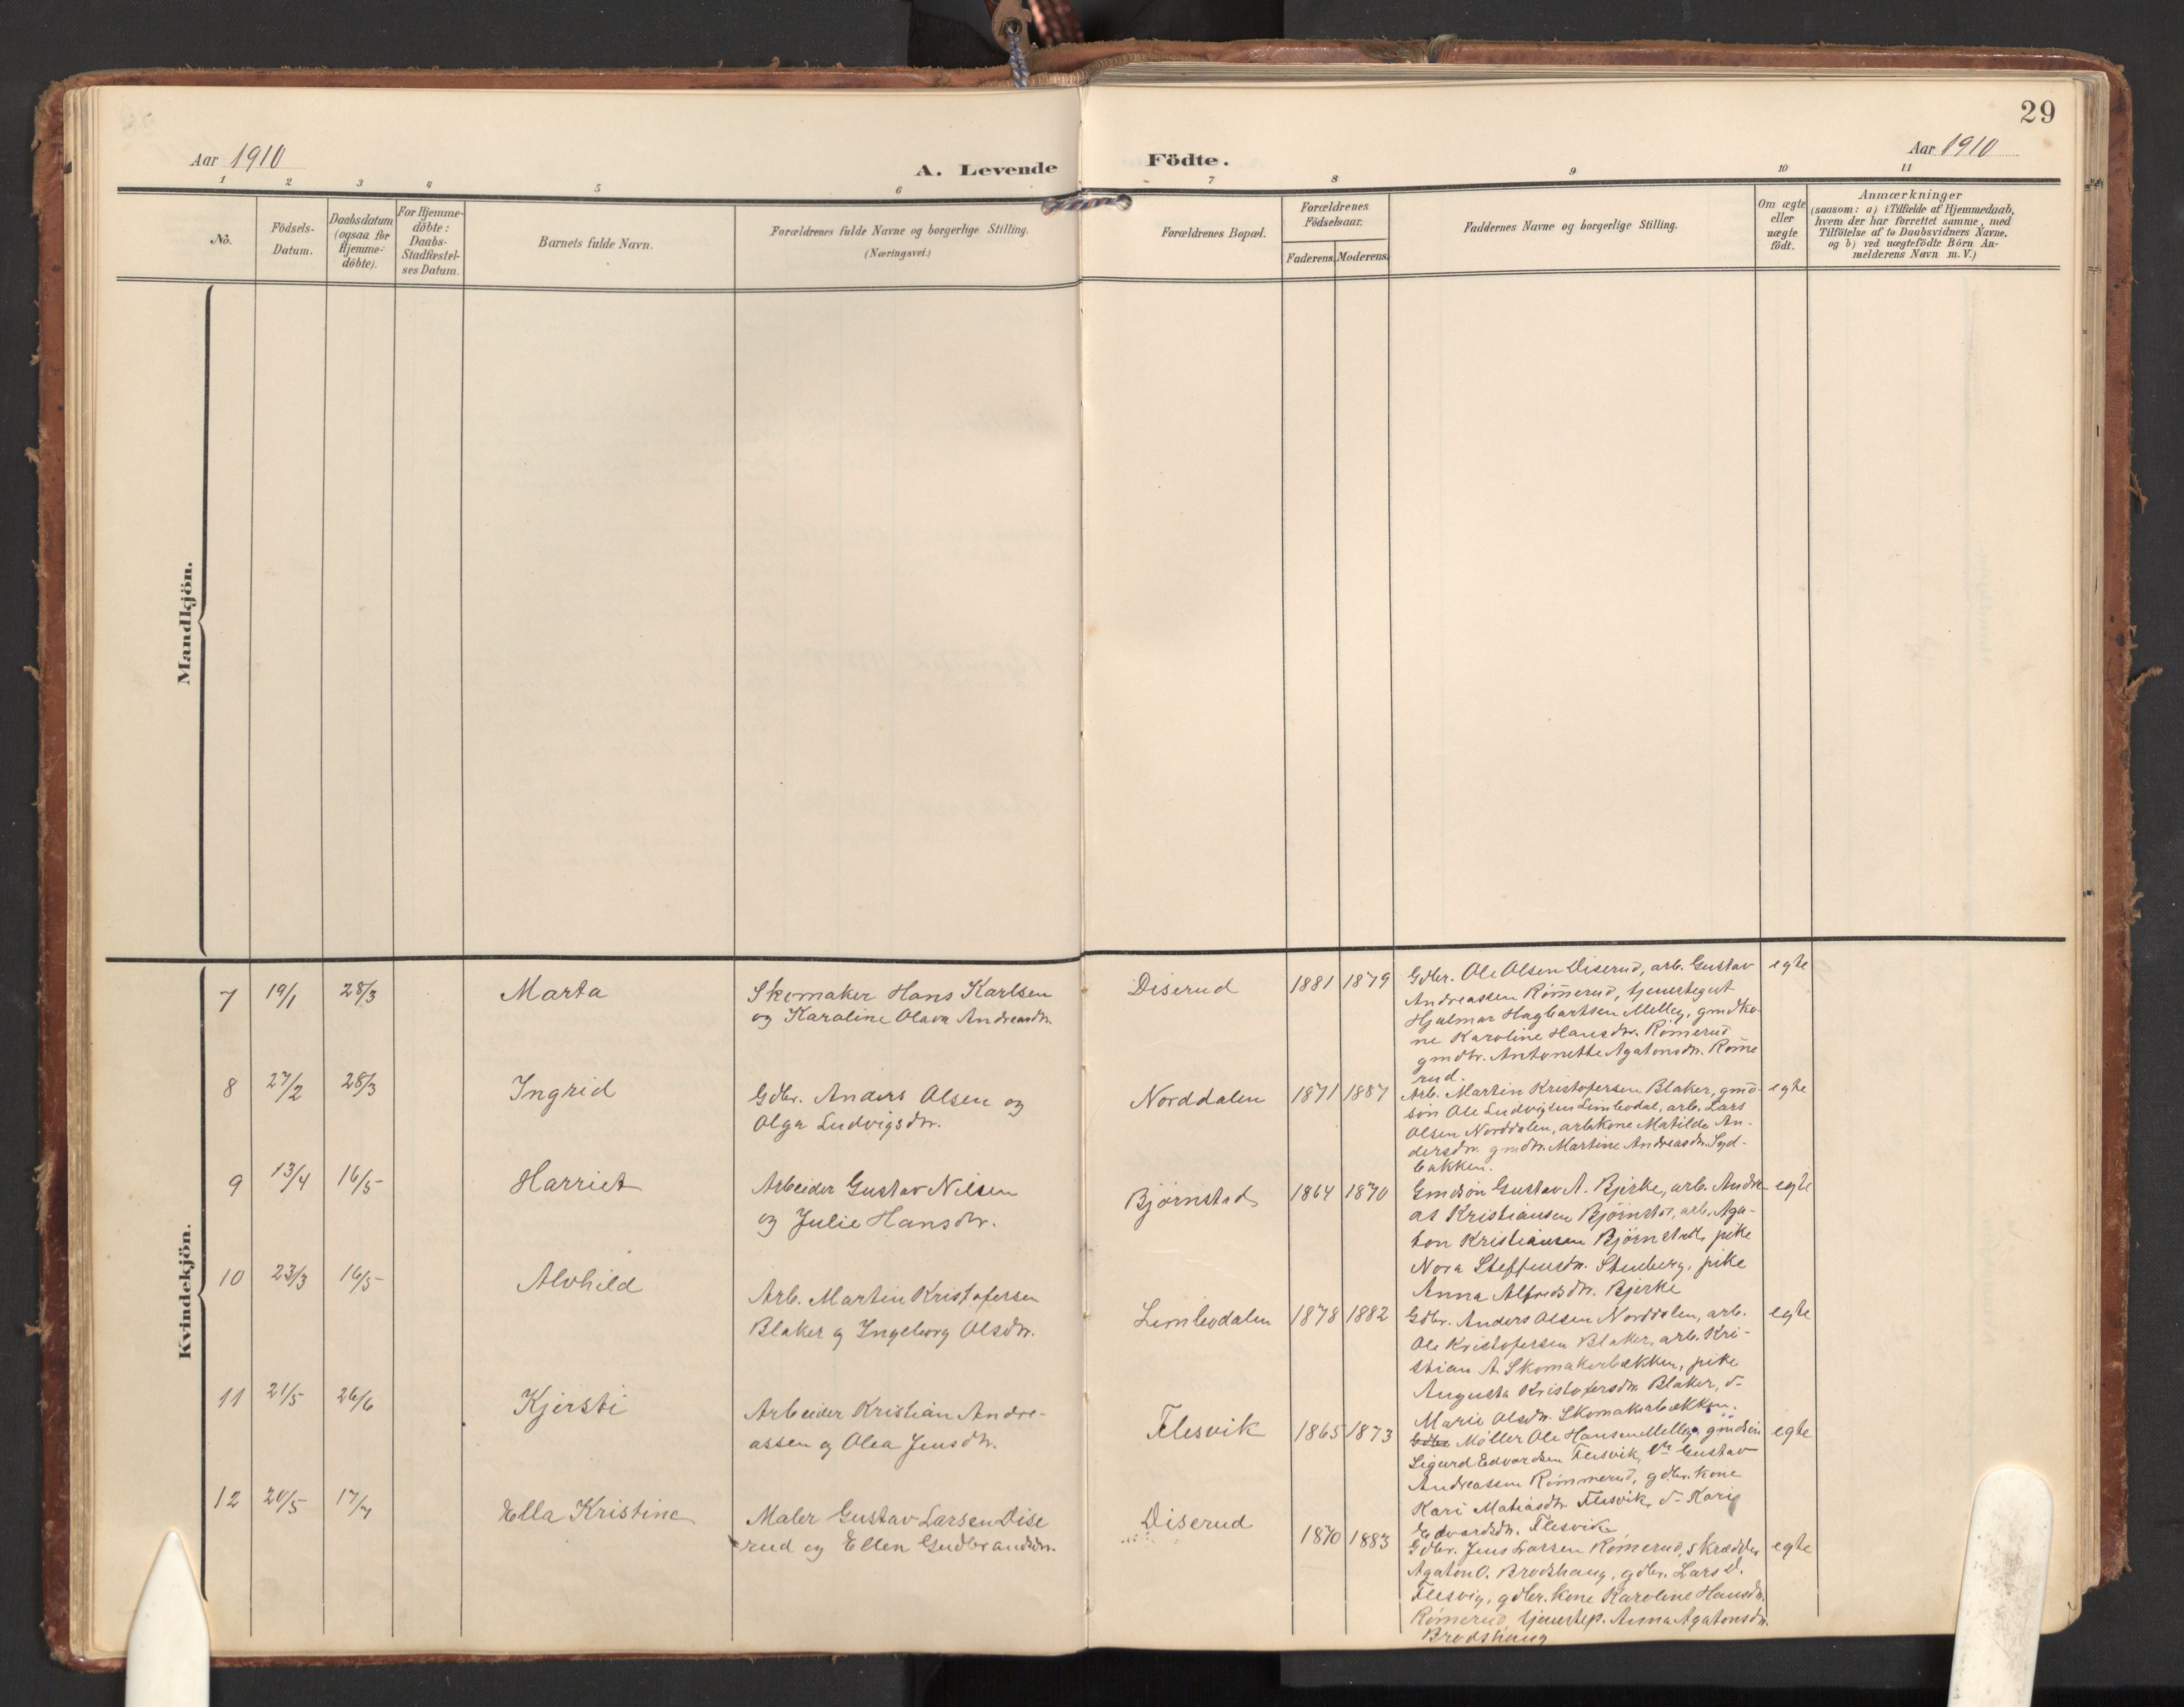 29
Aar 1910
A. Levende Födte.
Aar 1910
1 2 3 4 5 6 7 8 9 10 11
No.
Födsels-
Datum.
Daabsdatum
(ogsaa for
Hjemme-
döbte).
For Hjemme-
döbte:
Daabs-
Stadfæstel-
ses Datum.
Barnets fulde Navn.
Forældrenes fulde Navne og borgerlige Stilling.
(Næringsvei.)
Forældrenes Bopæl.
Forældrenes
Födselsaar.
Faderens. Moderens.
Faddernes Navne og borgerlige Stilling.
Om ægte
eller
uægte
födt.
Anmærkninger
(saasom: a) i Tilfælde af Hjemmedaab,
hvem der har forrettet samme, med
Tilföielse af to Daabsvidners Navne,
og b) ved uægtefödte Börn An-
melderens Navn m. V.)
Mandkjön.
Kvindekjön.
7 19/1 28/3 Marta
Skomaker Hans Karlsen
og Karoline Olava Andreasdtr.
Diserud 1881 1879
Gdbr. Ole Olsen Diserud, arb. Gustav
Andreassen Rømerud, tjenestegut
Hjalmar Hagbartsen Melleg, gmdko-
ne Karoline Hansdtr. Rømerud
gmdtr. Antonette Agatonsdtr. Røme
rud.
egte
8 27/2 28/3 Ingrid
Gdbr. Anders Olsen og
Olga Ludvigsdtr.
Norddalen 1871 1887
Arb. Martin Kristofersen Blaker, gmd-
søn Ole Ludvigsen Limbodal, arb. Lars
Olsen Norddalen, arbkone Matilde An-
dersdtr. gmdtr. Martine Andreasdtr.
bakken.
egte
9 13/4 16/5 Harriet
Arbeider Gustav Nilsen
og Julie Hansdtr.
Bjørnstad 1864 1870
Gmdsøn Gustav A. Bjerke, arb. Andre
as Kristiansen Bjørnstad, arb. Aga-
ton Kristiansen Bjørnstad, pike
Nora Steffensdtr. Stenberg, pike
Anna Alfredsdtr. Bjerke
egte
10 23/3 16/5 Alvhild
Arb. Martin Kristofersen
Blaker og Ingeborg Olsdtr.
Limbodalen 1878 1882
Gdbr. Anders Olsen Norddalen, arb.
Ole Kristofersen Blaker, arb. Kri-
stian A. Skomakerbækken, pike
Augusta Kristofersdtr. Blaker, d-
Marie Olsdtr. Skomakerbækken.
egte
11 21/5 26/6 Kjersti
Arbeider Kristian Andre-
assen og Olea Jensdtr.
Flesvik 1865 1873
Gdbr. Møller Ole Hansen Melleg, gmdsøn
Sigurd Edvardsen Flesvik, Gustav
Andreassen Rømmerud, gdbr. kone
Kari Matiasdtr. Flesvik, d- Kari
Edvardsdtr. Flesvik
egte
12 20/5 17/7 Ella Kristine
Maler Gustav Larsen Dise
rud og Ellen Gudbrandsdtr.
Diserud 1870 1883
Gdbr. Jens Larsen Rømerud, skrædder
Agaton O. Brodshaug, gdbr. Lars D.
Flesvig, gdbr. kone Karoline Hansdtr.
Rømerud, tjenestep. Anna Agatonsdtr.
Brodshaug
egte